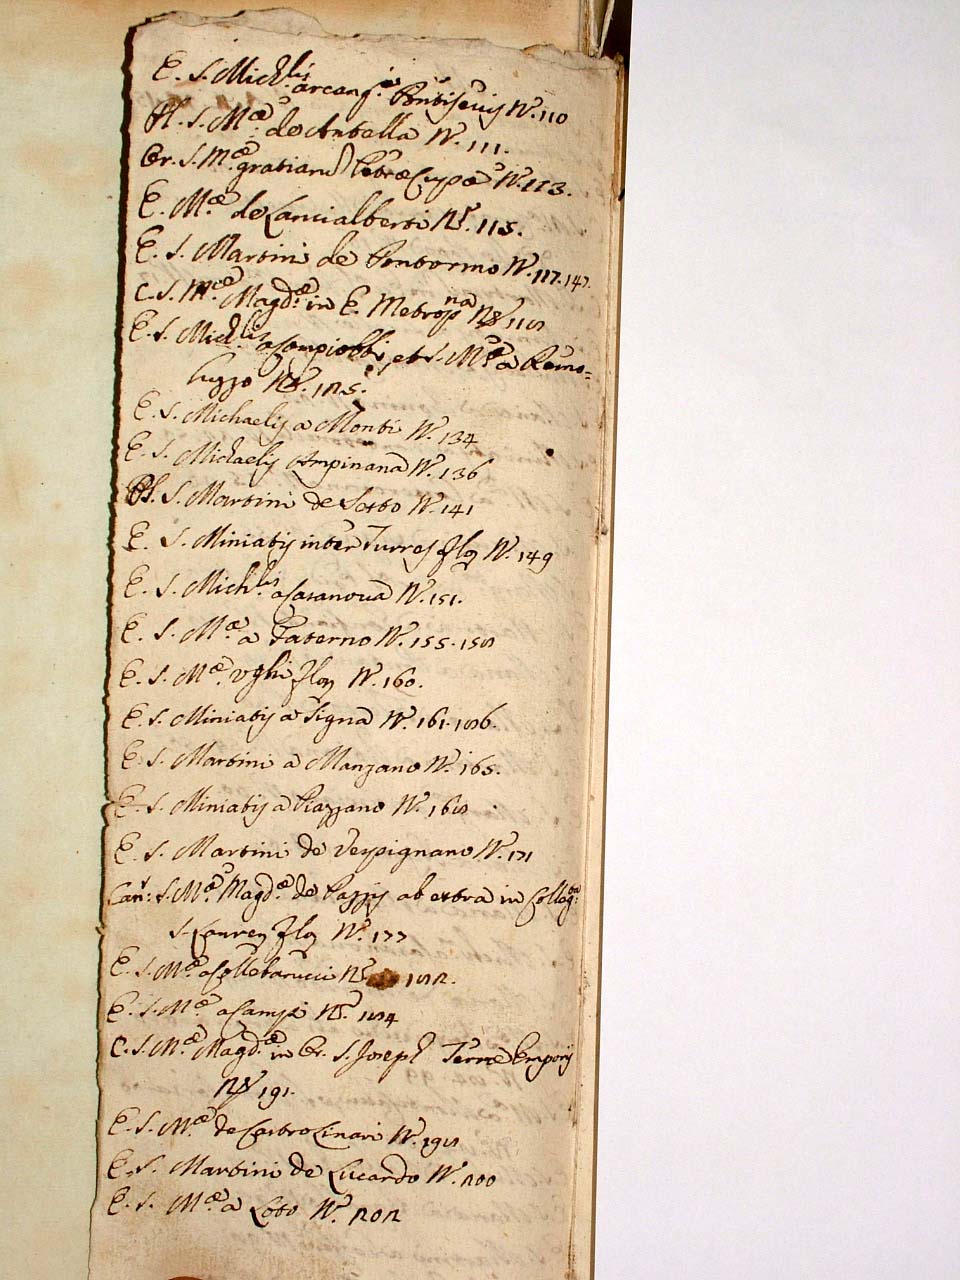 E. S. Mich.lis arcang.i Pontisevij N.o 110
Pl. S. M.æ de Antella N.o 111.
Or. S. M.æ gratiarũ Petræ Cupæ N.o 113.
E. M.æ de Lancialberti N.o 115.
E. S. Martini de Pontormo N.o 117. 147
C. S. M.æ Magd.æ in E. Metrop.na N.o 118
E. S. Mich.lis a Compiobbi, et S. M.æ a Remo=
luzzo N.o 125.
E. S. Michaelis a Monti N.o 134
E. S. Michaelis Ampinana N.o 136
Pl. S. Martini de Sesto N.o 141
E. S. Miniatis inter Turres Flor. N.o 149
E. S. Mich.lis a Casanova N.o 151.
E. S. M.æ a Paterno N.o 155. 158
E. S. M.æ Ughi Flor. N.o 160.
E. S. Miniatis a Signa N.o 161. 186.
E. S. Martini a Manzano N.o 165.
E. S. Miniatis a Piazzano N.o 168
E. S. Martini de Vespignano N.o 171
Can.s S. M.æ Magd.æ de Pazzis ab extra in Colleg.ta
S. Lauren. Flor. N.o 177
E. S. M.æ a Collebarucci N.o 182.
E. S. M.æ a Campi N.o 184
C. S. M.æ Magd.æ in Or. S. Joseph Terræ Emporij
N.o 191.
E. S. M.æ de Castro Linari N.o 198
E. S. Martini de Lucardo N.o 200
E. S. M.æ a Loto N.o 202